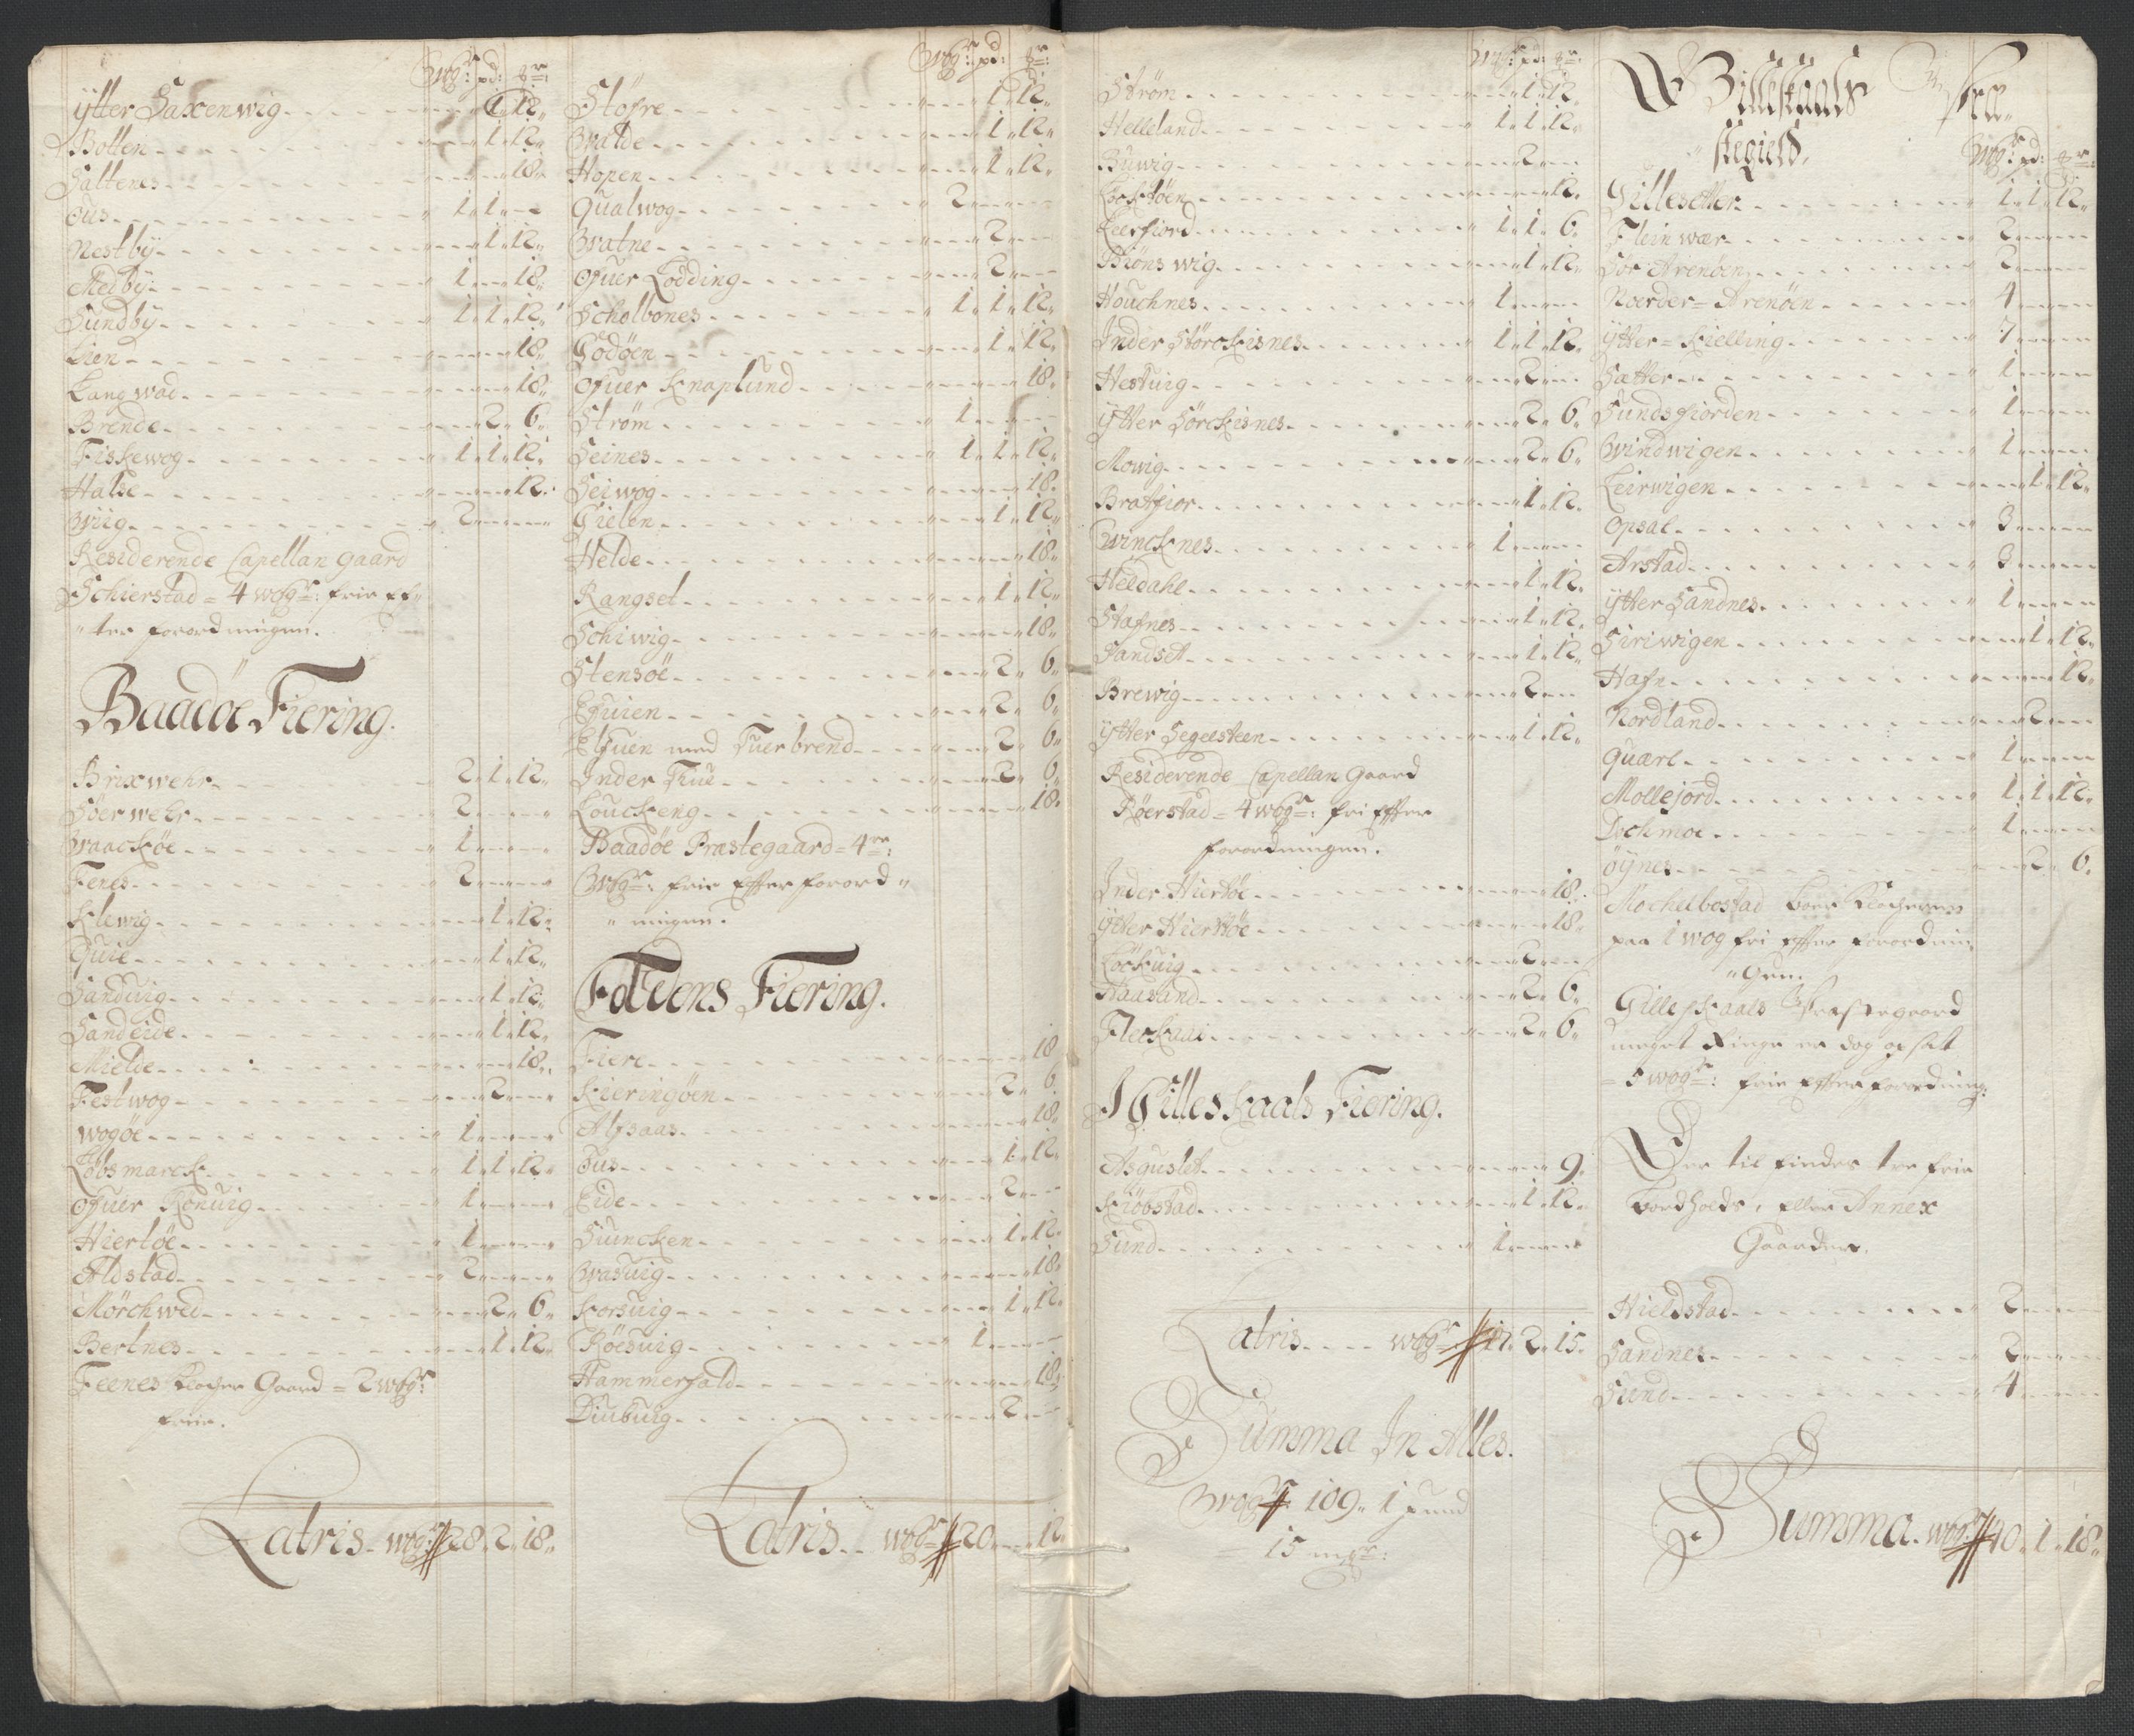 Wogr: pd: mr:
ÿtter Saxenwig - - - 1 „ 12 „
Botten - - - 1 „ 12 „
Saltenes - - - 18 „
Øus - - - 1 „ 1 „ -
Nestbÿ - - - 1 „ 12 „
Medbÿ - - - 1 „ - „ 18 „
Sundbÿ - - - 1 „ 1 „ 12 „
Lien - - - 18 „
Langwad - - - 18 „
Brende - - - 2 „ 6 „
Fiskewog - - - 1 „ 1 „ 12 „
Halse - - - 12 „
Wiig - - - 2 „ - „ -
Residerende Capellan gaard
Schierstad = 4 wogr: frie ef„
„ter forordningen.
Baadöe Fiering.
Brixwehr - - - 2 „ 1 „ 12 „
Söerwehr - - - 2 „ - „ -
Waacköe - - - 1 „ - „ -
Fenes - - - 2 „ - „ -
Klewig - - - 1 „ 12 „
Quie - - - 1 „ 12 „
Sanduig - - - 1 „ 12 „
Sandeide - - - 1 „ 12 „
Mielde - - - 18 „
Festwog - - - 2 „ -
Wogöe - - - 1 „ - „ -
Löbsmarck - - - 1 „ 1 „ 12 „
Ofuer Könuig - - - 1 „ - „ -
Hiertöe - - - 1 „ - „ -
Aldstad - - - 2 „ - „ -
Mörchwed - - - 2 „ 6 „
Bertnes - - - 1 „ 12 „
Feenes Klocher Gaard = 2 wogr:
frie.
Latris - wogr: 28 „ 2 „ 18 „
Wogr: pd: mr:
Stöfre - - - 1 „ 12 „
Walde - - - 1 „ 12 „
Hopen - - - 1 „ 12 „
Qualwog - - - 2 „ - „ -
Watne - - - 2 „ -
Ofuer Lödding - - - 2 „ -
Scholbones - - - 1 „ 1 „ 12 „
Godöen - - - 1 „ 12 „
Ofuer Knaplund - - - 18 „
Ström - - - 1 „ - „ -
Seines - - - 1 „ 1 „ 12 „
Seiwog - - - 18 „
Gielen - - - 1 „ 12 „
Helde - - - 18 „
Rangset - - - 1 „ 12 „
Schiwig - - - 18 „
Stensöe - - - 2 „ 6 „
Efuien - - - 2 „ 6 „
Elfuen med Tuerbrend - - - 2 „ 6 „
Inder Thue - - - 2 „ 6 „
Louckeng - - - 18 „
Baadöe Præstegaard = 4re:
Wogr: frie effter forord„
„ningen.
Foldens Fiering.
Fiere - - - 18
Kieringöen - - - 2 „ 6
Alfsaas - - - 18 „
Øus - - - 1 „ 12 „
Eide - - - 2 „ -
Suincken - - - 1 „ 12 „
Wasuig - - - 18 „
Korsuig - - - 1 „ 12 „
Röesuig - - - 1 „ - „ -
Hammerfald - - - 18 „
Diubuig - - - 2 „ -
Latris - - wogr: 20 „ - „ 12 „
Wogr: pd: mr:
Ström - - - 1 „ 12 „
Helleland - - - 1 „ 1 „ 12 „
Buwig - - - 2 „ -
Løcktöen - - - 12 „
Leerfiord - - - 1 „ 1 „ 6 „
Biönswig - - - 1 „ 12 „
Houchnes - - - 1 „ - „ -
Inder Störckisnes - - - 1 „ 1 „ 12 „
Hestuig - - - 2 „ -
ÿtter Sörckisnes - - - 2 „ 6 „
Mowig - - - 2 „ 6 „
Bratfior - - - 1 „ 12 „
Wincknes - - - 1 „ - „ -
Heldahl - - - 1 „ 12 „
Stafnes - - - 1 „ 12 „
Sandset - - - 1 „ 12 „
Brewig - - - 2 „ -
ÿtter Segelsteen - - - 1 „ 12 „
Residerende Capellan Gaard
Röerstad = 4 wogr: fri effter
forordningen.
Inder Hiertöe - - - 18 „
ÿtter Hiertöe - - - 18 „
Löckuig - - - 2 „ -
Naasand - - - 2 „ 6 „
Fleskaal - - - 2 „ 6 „
I Gilleskaals Fiering.
Asguslet - - - 9 „
Kiöbstad - - - 1 „ 12 „
Sund - - - 1 „ - „ -
Latris - - - wogr: 17 „ 2 „ 15 „
Summa In Alles.
Wogr: 109 „ 1 pund
15 mkr:
Gilleskaals Præ„
„stegield.
Wogr: pd: mr:
Gillesetter - - - 1 „ 1 „ 12 „
Fleinwær - - - 2 „ - „ -
Sör Arenöen - - - 2 „ - „ -
Noerder = Arenöen - - - 4 „ - „ -
ÿtter = Kielling - - - 7 „ - „ -
Sætter - - - 1 „ - „ -
Sundsfiorden - - - 1 „ - „ -
Windwigen - - - 1 „ - „ -
Leirwigen - - - 1 „ 12 „
Opsal - - - 3 „ - „ -
Arstad - - - 3 „ - „ -
ÿtter Sandnes - - - 1 „ - „ -
Siriwigen - - - 1 „ 12 „
Hafn - - - 12 „
Nordland - - - 2 „ -
Quarl - - - 1 „ - „ -
Mollejord - - - 1 „ 1 „ 12 „
Dochmoe - - - 1 „ - „ -
Öÿnes - - - 2 „ 6 „
Mochelbostad boer Klocheren
paa 1 wog fri effter forordnin„
„gen.
Gilleskaals Præstegaard
meget ringe er dog og sat
= 5 wogr: frie effter forordning:
Der til findes tre frie
bordholds, eller Annex
Gaarder.
Hieldstad - - - 2 „ - „ -
Sandnes - - - 2 „ - „ -
Sund - - - 4 „ - „ -
Summa. wogr: 40 „ 1 „ 18 „